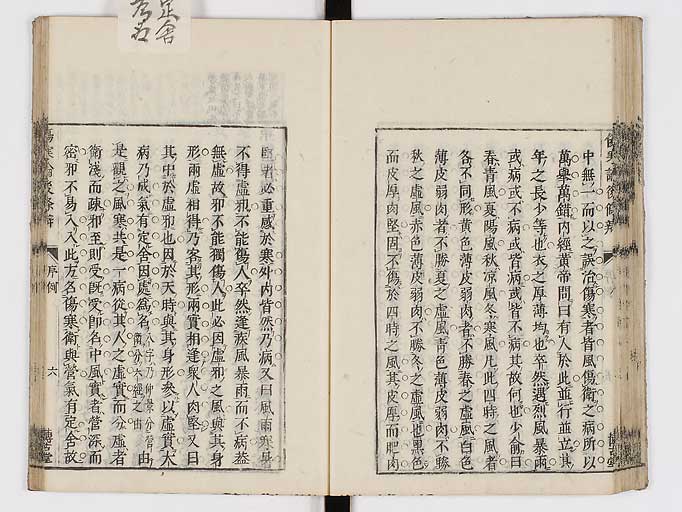 中無一而以之誤治傷寒者皆風傷衛之病所以
萬舉萬錯內經黃帝問曰有人於此並行並立其
年之長少等也衣之厚薄均也卒然遇烈風暴雨
或病或不病或皆病或皆不病其故何也少俞曰
春青風夏陽風秋凉風冬寒風凡此四時之風者
各不同形黃色薄皮弱肉者不勝春之虛風白色
薄皮弱肉者不勝夏之虛風青色薄皮弱肉不勝
秋之虛風赤色薄皮弱肉不勝冬之虛風也黑色
而皮厚肉堅固不傷於四時之風其皮厚而肥肉
堅者必重感於寒外內皆然乃病又曰風雨寒暑
不得虛邪不能傷人卒然逢疾風暴雨而不病蓋
無虛故邪不能獨傷人此必因虛邪之風與其身
形兩虛相得乃客其形兩實相逢衆人肉堅又曰
其中於虛邪也因於天時與其身形參以虛實大
病乃成氣有定舍因處爲名
是觀之風寒共是一病從其人之虛實而分虛者
衛淺而疎邪至則受旣受卽名中風實者營深而
密邪不易入入此方名傷寒衛與營氣有定舍故
序例 六
定舍